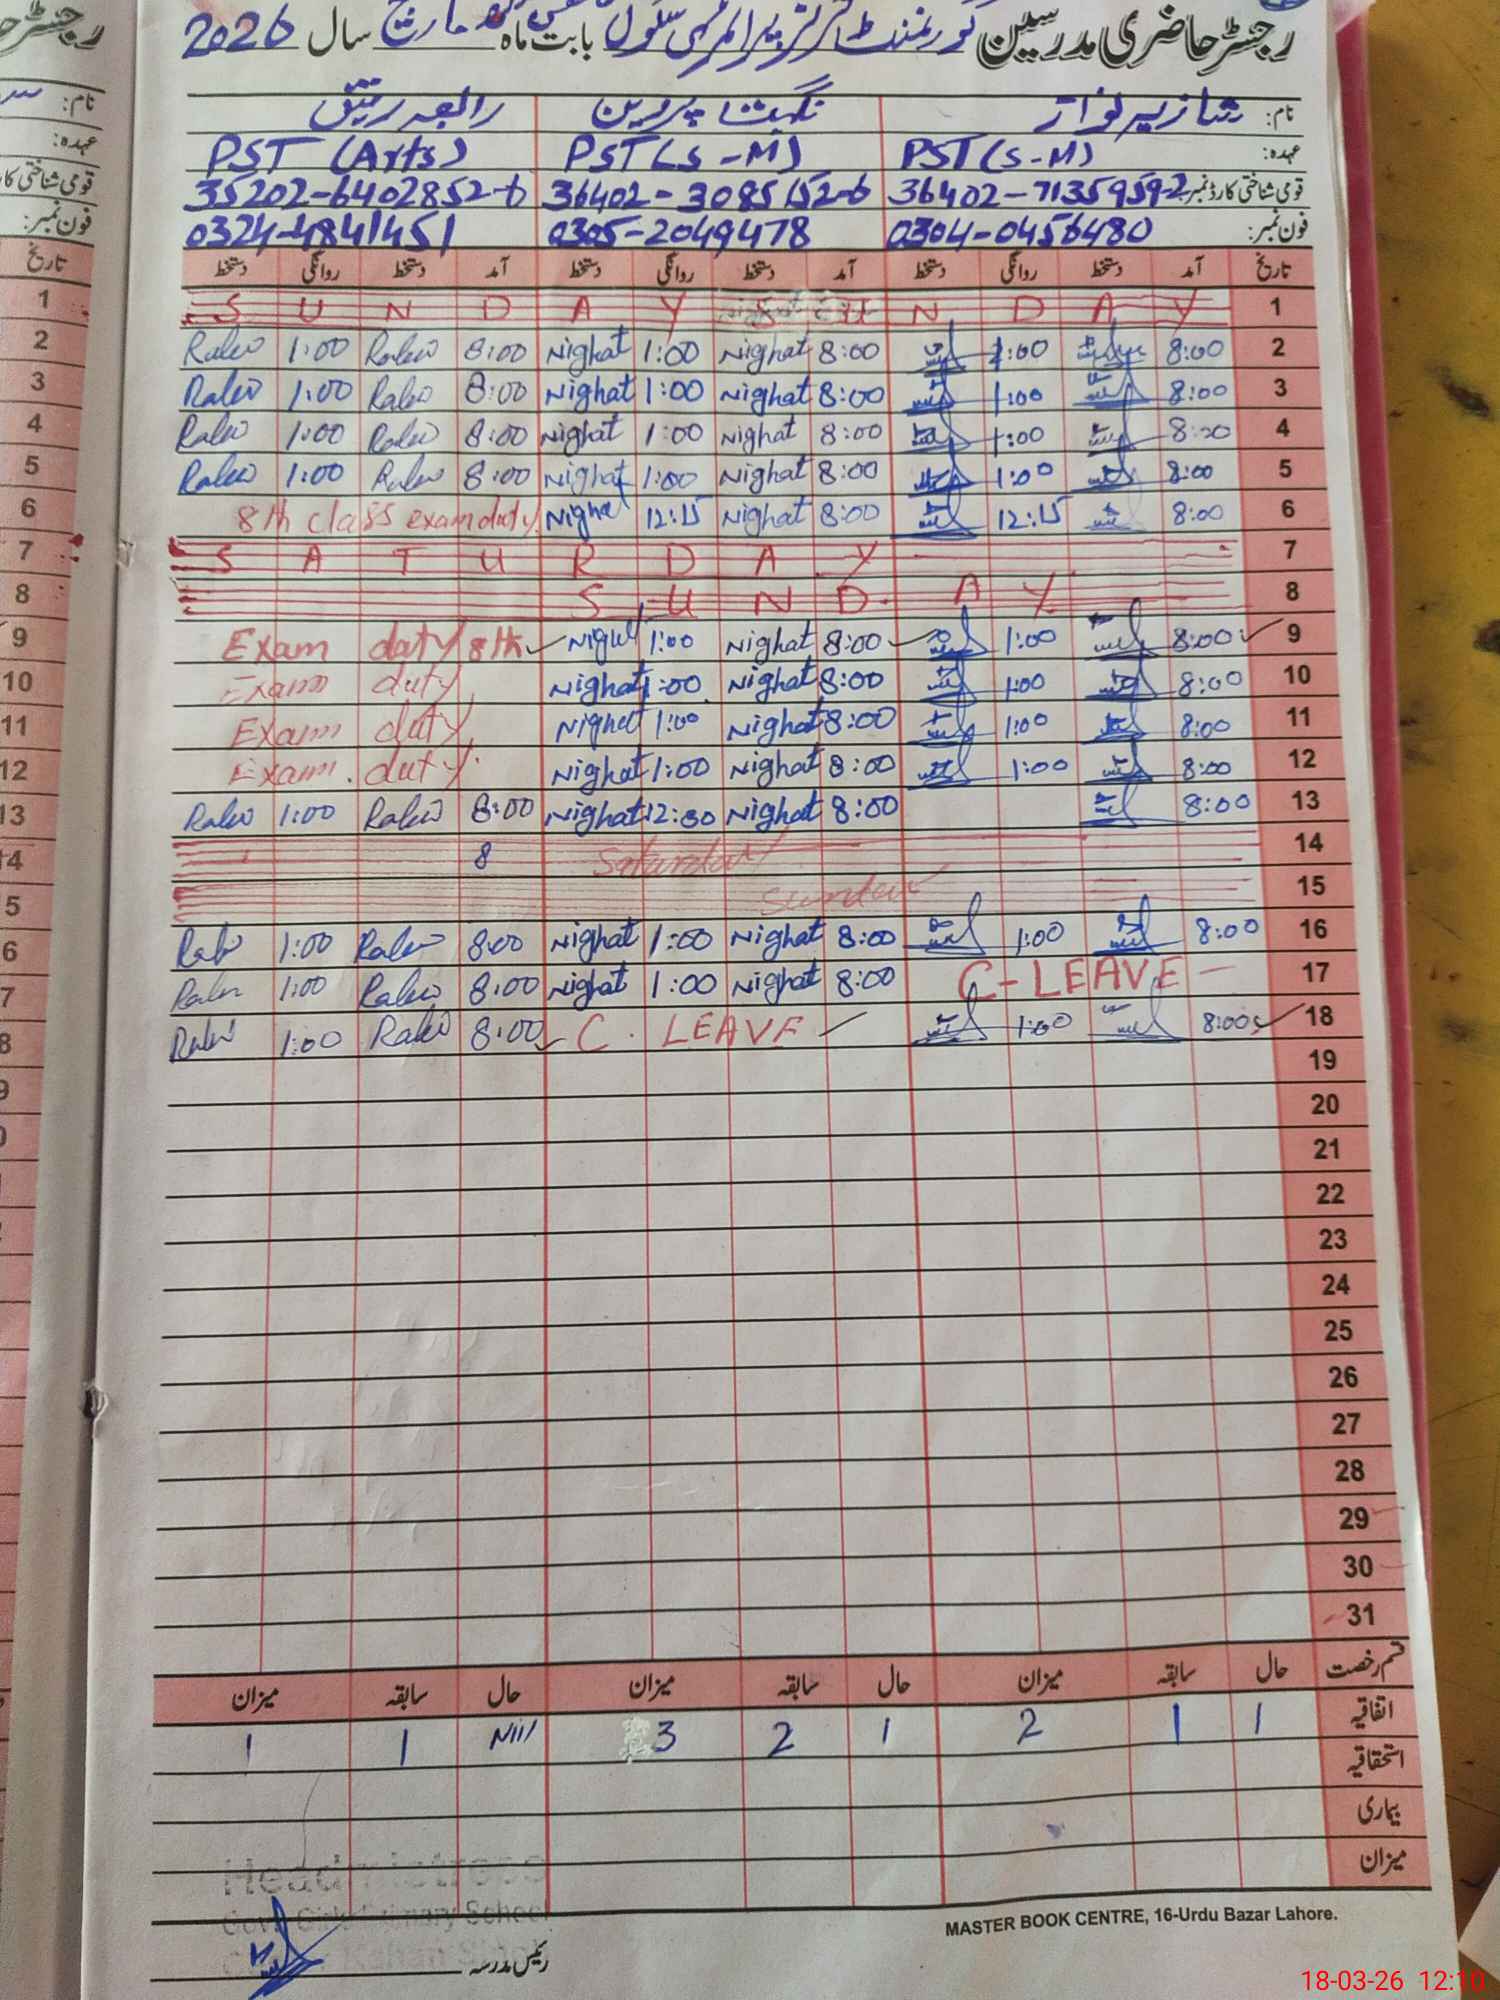 رجسٹر حاضری مدرسین گورنمنٹ گرلز پرائمری سکول بابت ماہ مارچ سال 2026
نام: شازیہ نواز نگہت پروین رابعہ رفیق
عہدہ: PST (S-M) PST (S-M) PST (Arts)
قومی شناختی کارڈ نمبر: 36402-7135959-2 36402-3085152-6 35202-6402852-6
فون نمبر: 0304-0456480 0305-2049478 0324-4841451
تاریخ آمد دستخط روانگی دستخط آمد دستخط روانگی دستخط آمد دستخط روانگی دستخط
1 S U N D A Y S U N D A Y
2 8:00 1:00 8:00 Nighat 1:00 Nighat 8:00 Rabia 1:00 Rabia
3 8:00 1:00 8:00 Nighat 1:00 Nighat 8:00 Rabia 1:00 Rabia
4 8:00 1:00 8:00 Nighat 1:00 Nighat 8:00 Rabia 1:00 Rabia
5 8:00 1:00 8:00 Nighat 1:00 Nighat 8:00 Rabia 1:00 Rabia
6 8:00 12:15 8:00 Nighat 12:15 Nighat 8th class exam duty
7 S A T U R D A Y
8 S U N D A Y
9 8:00 1:00 8:00 Nighat 1:00 Nighat Exam duty 8th
10 8:00 1:00 8:00 Nighat 1:00 Nighat Exam duty
11 8:00 1:00 8:00 Nighat 1:00 Nighat Exam duty
12 8:00 1:00 8:00 Nighat 1:00 Nighat Exam duty
13 8:00 8:00 Nighat 12:30 Nighat 8:00 Rabia 1:00 Rabia
14 Saturday 8
15 Sunday
16 8:00 1:00 8:00 Nighat 1:00 Nighat 8:00 Rabia 1:00 Rabia
17 C-LEAVE 8:00 Nighat 1:00 Nighat 8:00 Rabia 1:00 Rabia
18 8:00 1:00 C. LEAVE 8:00 Rabia 1:00 Rabia
19
20
21
22
23
24
25
26
27
28
29
30
31
قسم رخصت حال سابقہ میزان حال سابقہ میزان حال سابقہ میزان
اتفاقیہ 1 1 2 1 2 3 Nill 1 1
استحقاقیہ
بیماری
میزان
Headmistress
Govt. Girls Primary School
رئیس مدرسہ
MASTER BOOK CENTRE, 16-Urdu Bazar Lahore.
18-03-26 12:10
رجسٹر
نام:
عہدہ:
قومی شناختی کارڈ
فون نمبر:
تاریخ
1
2
3
4
5
6
7
8
9
10
11
12
13